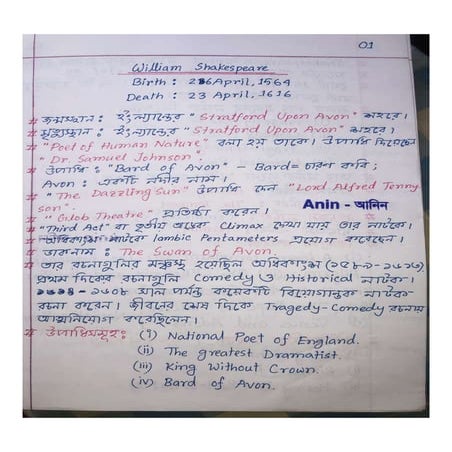 01
William Shakespeare
Birth : 26 April, 1564
Death : 23 April, 1616
# জন্মস্থান : ইংল্যান্ডের "Stratford Upon Avon" শহরে।
# মৃত্যুস্থান : ইংল্যান্ডের "Stratford Upon Avon" শহরে।
# "Poet of Human Nature" বলা হয় তাকে। উপাধি দিয়েছেন
"Dr. Samuel Johnson".
# উপাধি : "Bard of Avon" - Bard = চারণ কবি;
Avon : একটি নদীর নাম।
# "The Dazzling Sun" উপাধি দেন "Lord Alfred Tenny
son".
Anin - আনিন
# "Glob Theatre" প্রতিষ্ঠা করেন।
# "Third Act" বা তৃতীয় অঙ্কের Climax দেখা যায় তার নাটকে।
# অধিকাংশ নাটকে Iambic Pentameters প্রয়োগ করেছেন।
# ডাকনাম : The Swan of Avon.
# তার রচনাগুলির মঞ্চস্থ হয়েছিল অধিকাংশ (১৫৮৯-১৬১৩)
প্রথম দিকের রচনাগুলি Comedy ও Historical নাটক।
১৬০৮ সাল পর্যন্ত কয়েকটি বিয়োগান্তক নাটক
রচনা করেন। জীবনের শেষ দিকে Tragedy-Comedy রচনায়
আত্মনিয়োগ করেছিলেন।
# উপাধিসমূহ : (i) National Poet of England.
(ii) The greatest Dramatist.
(iii) King Without Crown.
(iv) Bard of Avon.